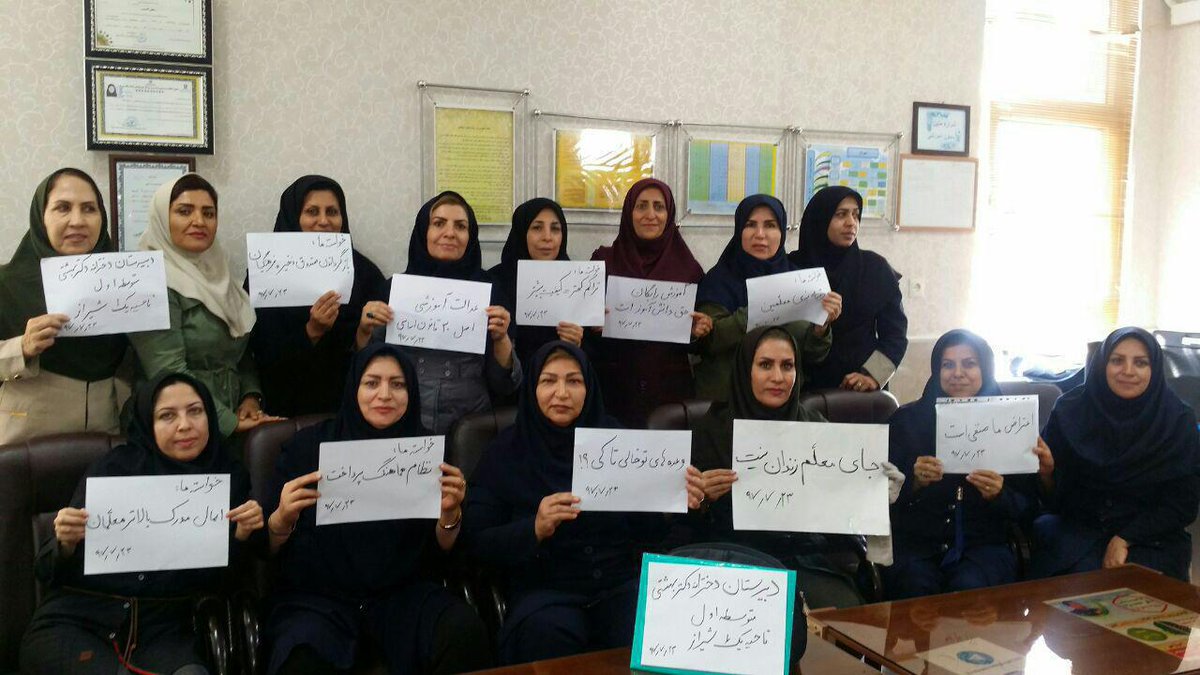 دبیرستان دخترانه دکتر بهشتی
متوسطه اول
ناحیه یک شیراز
۹۷/۷/۲۳
خواسته ما:
بازگرداندن صندوق ذخیره فرهنگیان
۹۷/۷/۲۳
عدالت آموزشی
اصل ۳۰ قانون اساسی
۹۷/۷/۲۳
خواسته ما:
تراکم کمتر = کیفیت بیشتر
۹۷/۷/۲۳
آموزش رایگان
حق دانش آموز است
۹۷/۷/۲۳
خواسته ما:
معلمین
۹۷/۷/۲۳
خواسته ما:
اعمال مدرک بالاتر معلمان
۹۷/۷/۲۳
خواسته ما:
نظام هماهنگ پرداخت
۹۷/۷/۲۳
وعده های توخالی تا کی؟!
۹۷/۷/۲۳
جای معلم زندان نیست
۹۷/۷/۲۳
اعتراض ما صنفی است
۹۷/۷/۲۳
دبیرستان دخترانه دکتر بهشتی
متوسطه اول
ناحیه یک شیراز
۹۷/۷/۲۳